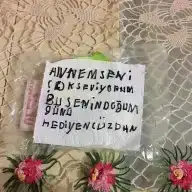 ANNEMSENİ
ÇOKSEVİYORUM
BUSENİNDOĞUM
GÜNÜ
HEDİYEN